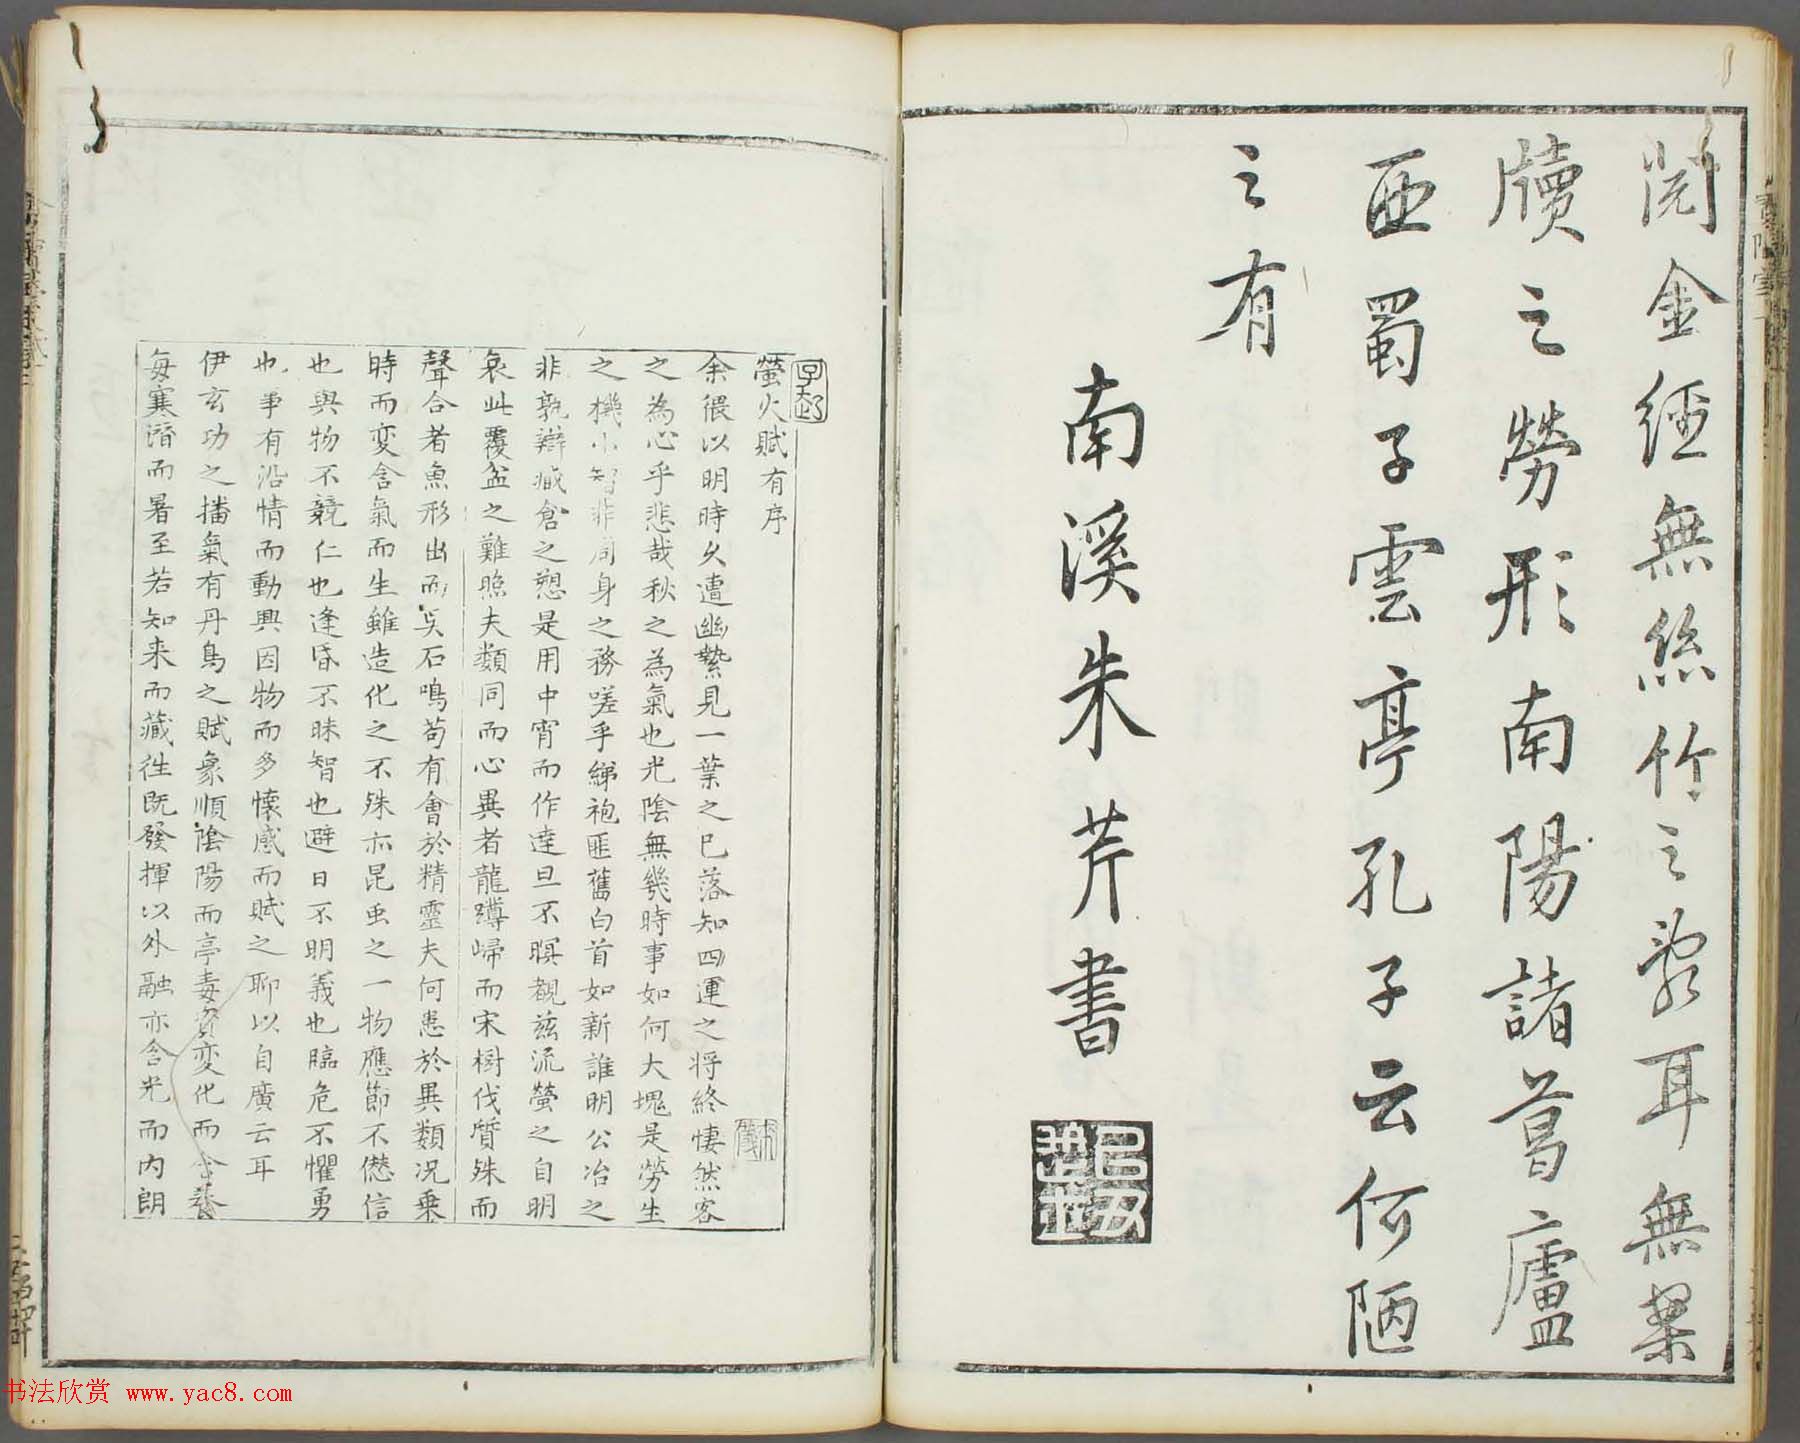 閱金經無絲竹之亂耳無案
牘之勞形南陽諸葛廬
西蜀子雲亭孔子云何陋
之有
南溪朱芹書
子起
螢火賦有序
余猥以明時久遭幽縶見一葉之已落知四運之将終悽然客
之為心乎悲哉秋之為氣也光陰無幾時事如何大塊是勞生
之機小智非周身之務嗟乎綈袍匪舊白首如新誰明公冶之
非孰辯臧倉之愬是用中宵而作達旦不暝覩兹流螢之自明
哀此覆盆之難照夫類同而心異者龍蹲歸而宋樹伐質殊而
聲合者魚形出而吴石鳴苟有會於精靈夫何患於異類况乗
時而变含氣而生雖造化之不殊亦昆虫之一物應節不僁信
也與物不競仁也逢昏不昧智也避日不明義也臨危不懼勇
也事有沿情而動興因物而多懷感而賦之聊以自廣云耳
伊玄功之播氣有丹鳥之賦象順陰陽而亭毒資变化而含養
每寒潛而暑至若知来而藏徃既發揮以外融亦含光而内朗
书法欣赏 www.yac8.com